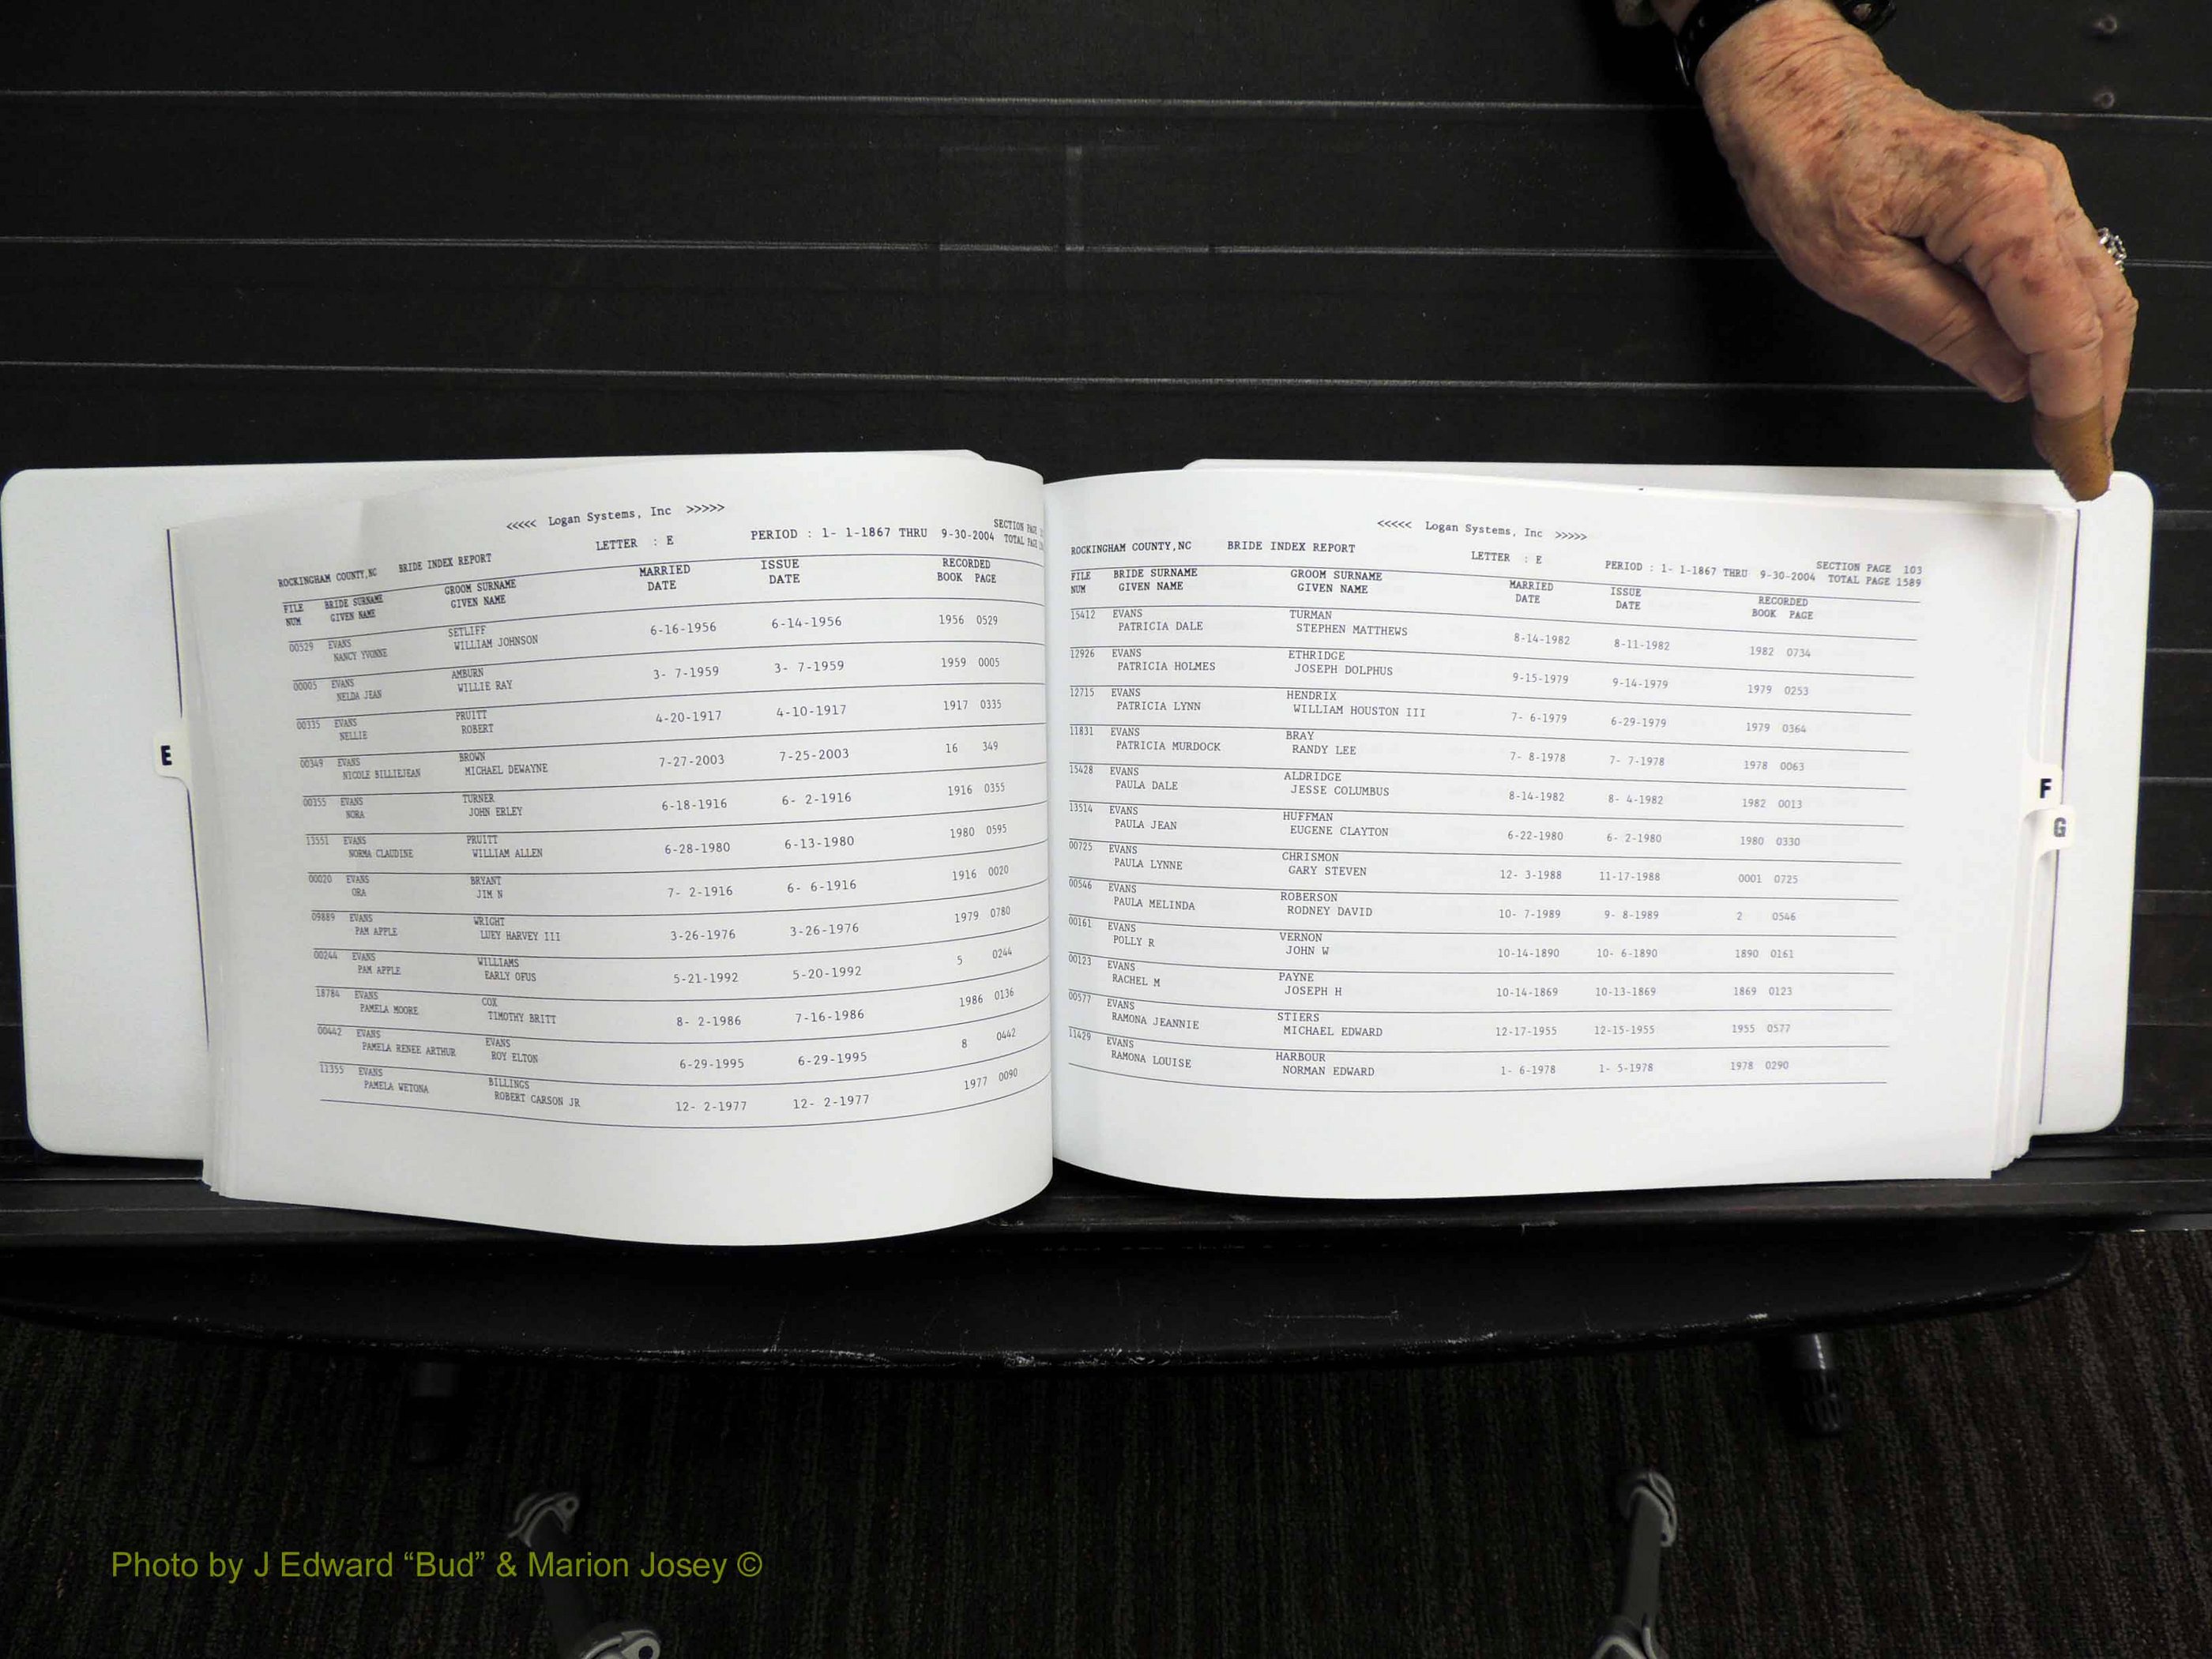 <<<<< Logan Systems, Inc >>>>>
ROCKINGHAM COUNTY,NC BRIDE INDEX REPORT LETTER : E PERIOD : 1- 1-1867 THRU 9-30-2004 SECTION PAGE
TOTAL PAGE
FILE BRIDE SURNAME GROOM SURNAME MARRIED ISSUE RECORDED
NUM GIVEN NAME GIVEN NAME DATE DATE BOOK PAGE
00529 EVANS SETLIFF 6-16-1956 6-14-1956 1956 0529
NANCY YVONNE WILLIAM JOHNSON
00005 EVANS AMBURN 3- 7-1959 3- 7-1959 1959 0005
NELDA JEAN WILLIE RAY
00335 EVANS PRUITT 4-20-1917 4-10-1917 1917 0335
NELLIE ROBERT
00349 EVANS BROWN 7-27-2003 7-25-2003 16 349
NICOLE BILLIEJEAN MICHAEL DEWAYNE
00355 EVANS TURNER 6-18-1916 6- 2-1916 1916 0355
NORA JOHN ERLEY
13551 EVANS PRUITT 6-28-1980 6-13-1980 1980 0595
NORMA CLAUDINE WILLIAM ALLEN
00020 EVANS BRYANT 7- 2-1916 6- 6-1916 1916 0020
ORA JIM N
09889 EVANS WRIGHT 3-26-1976 3-26-1976 1979 0780
PAM APPLE LUEY HARVEY III
00244 EVANS WILLIAMS 5-21-1992 5-20-1992 5 0244
PAM APPLE EARLY OFUS
18784 EVANS COX 8- 2-1986 7-16-1986 1986 0136
PAMELA MOORE TIMOTHY BRITT
00442 EVANS EVANS 6-29-1995 6-29-1995 8 0442
PAMELA RENEE ARTHUR ROY ELTON
11355 EVANS BILLINGS 12- 2-1977 12- 2-1977 1977 0090
PAMELA WETONA ROBERT CARSON JR
E
<<<<< Logan Systems, Inc >>>>>
ROCKINGHAM COUNTY,NC BRIDE INDEX REPORT LETTER : E PERIOD : 1- 1-1867 THRU 9-30-2004 SECTION PAGE 103
TOTAL PAGE 1589
FILE BRIDE SURNAME GROOM SURNAME MARRIED ISSUE RECORDED
NUM GIVEN NAME GIVEN NAME DATE DATE BOOK PAGE
15412 EVANS TURMAN 8-14-1982 8-11-1982 1982 0734
PATRICIA DALE STEPHEN MATTHEWS
12926 EVANS ETHRIDGE 9-15-1979 9-14-1979 1979 0253
PATRICIA HOLMES JOSEPH DOLPHUS
12715 EVANS HENDRIX 7- 6-1979 6-29-1979 1979 0364
PATRICIA LYNN WILLIAM HOUSTON III
11831 EVANS BRAY 7- 8-1978 7- 7-1978 1978 0063
PATRICIA MURDOCK RANDY LEE
15428 EVANS ALDRIDGE 8-14-1982 8- 4-1982 1982 0013
PAULA DALE JESSE COLUMBUS
13514 EVANS HUFFMAN 6-22-1980 6- 2-1980 1980 0330
PAULA JEAN EUGENE CLAYTON
00725 EVANS CHRISMON 12- 3-1988 11-17-1988 0001 0725
PAULA LYNNE GARY STEVEN
00546 EVANS ROBERSON 10- 7-1989 9- 8-1989 2 0546
PAULA MELINDA RODNEY DAVID
00161 EVANS VERNON 10-14-1890 10- 6-1890 1890 0161
POLLY R JOHN W
00123 EVANS PAYNE 10-14-1869 10-13-1869 1869 0123
RACHEL M JOSEPH H
00577 EVANS STIERS 12-17-1955 12-15-1955 1955 0577
RAMONA JEANNIE MICHAEL EDWARD
11429 EVANS HARBOUR 1- 6-1978 1- 5-1978 1978 0290
RAMONA LOUISE NORMAN EDWARD
F
G
Photo by J Edward “Bud” & Marion Josey ©